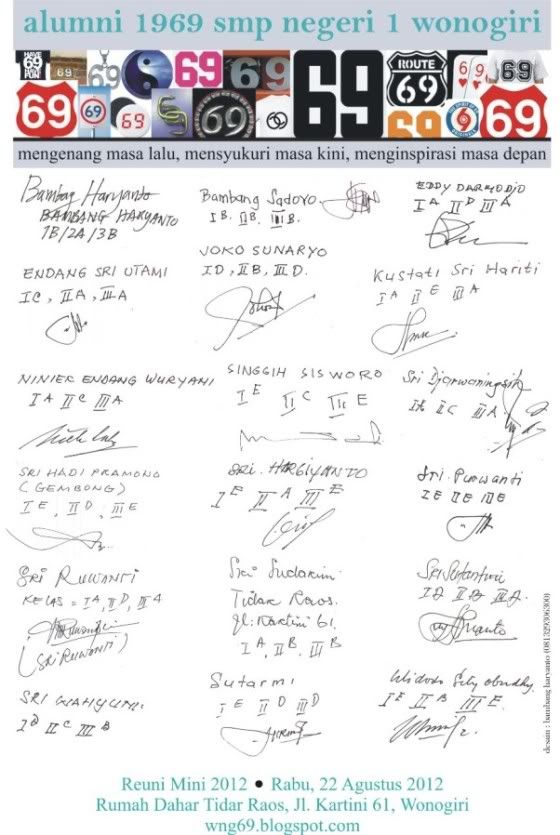 alumni 1969 smp negeri 1 wonogiri
HAVE
69
69
69
69
69
69
69
69
ROUTE
69
69
69
69
69
mengenang masa lalu, mensyukuri masa kini, menginspirasi masa depan
Bambang Haryanto
BAMBANG HARYANTO
1B/2A/3B
Bambang Sadoro
IB. IIB. IIIB.
EDDY DARMODJO
IA IID IIIA
ENDANG SRI UTAMI
IC, IIA, IIIA
JOKO SUNARYO
ID, IIB, IIID.
Kustati Sri Hariti
IA IIE IIIA
NINIEK ENDANG WURYANI
IA IIC IIIA
SINGGIH SISWORO
IE IIC IIIE
Sri Djarwaningsih
IA IIC IIIA
SRI HADI PRAMONO
(GEMBONG)
IE, IID, IIIE
SRI. HARGIYANTO
IE IIA IIIE
Sri. Purwanti
IE IIE IIIE
SRI RUWANTI
KELAS = IA, IID, IIIA
(SRI RUWANTI)
Sri Sudarini
Tidar Raos.
Jl. Kartini 61,
IA, IIB, IIIB
SRI WAHYUNI
ID IIC IIIB
Sutarmi
IE IID IIID
Widodo
IE IIB IIIE.
desain : bambang haryanto (081329306300)
Reuni Mini 2012 ● Rabu, 22 Agustus 2012
Rumah Dahar Tidar Raos, Jl. Kartini 61, Wonogiri
wng69.blogspot.com